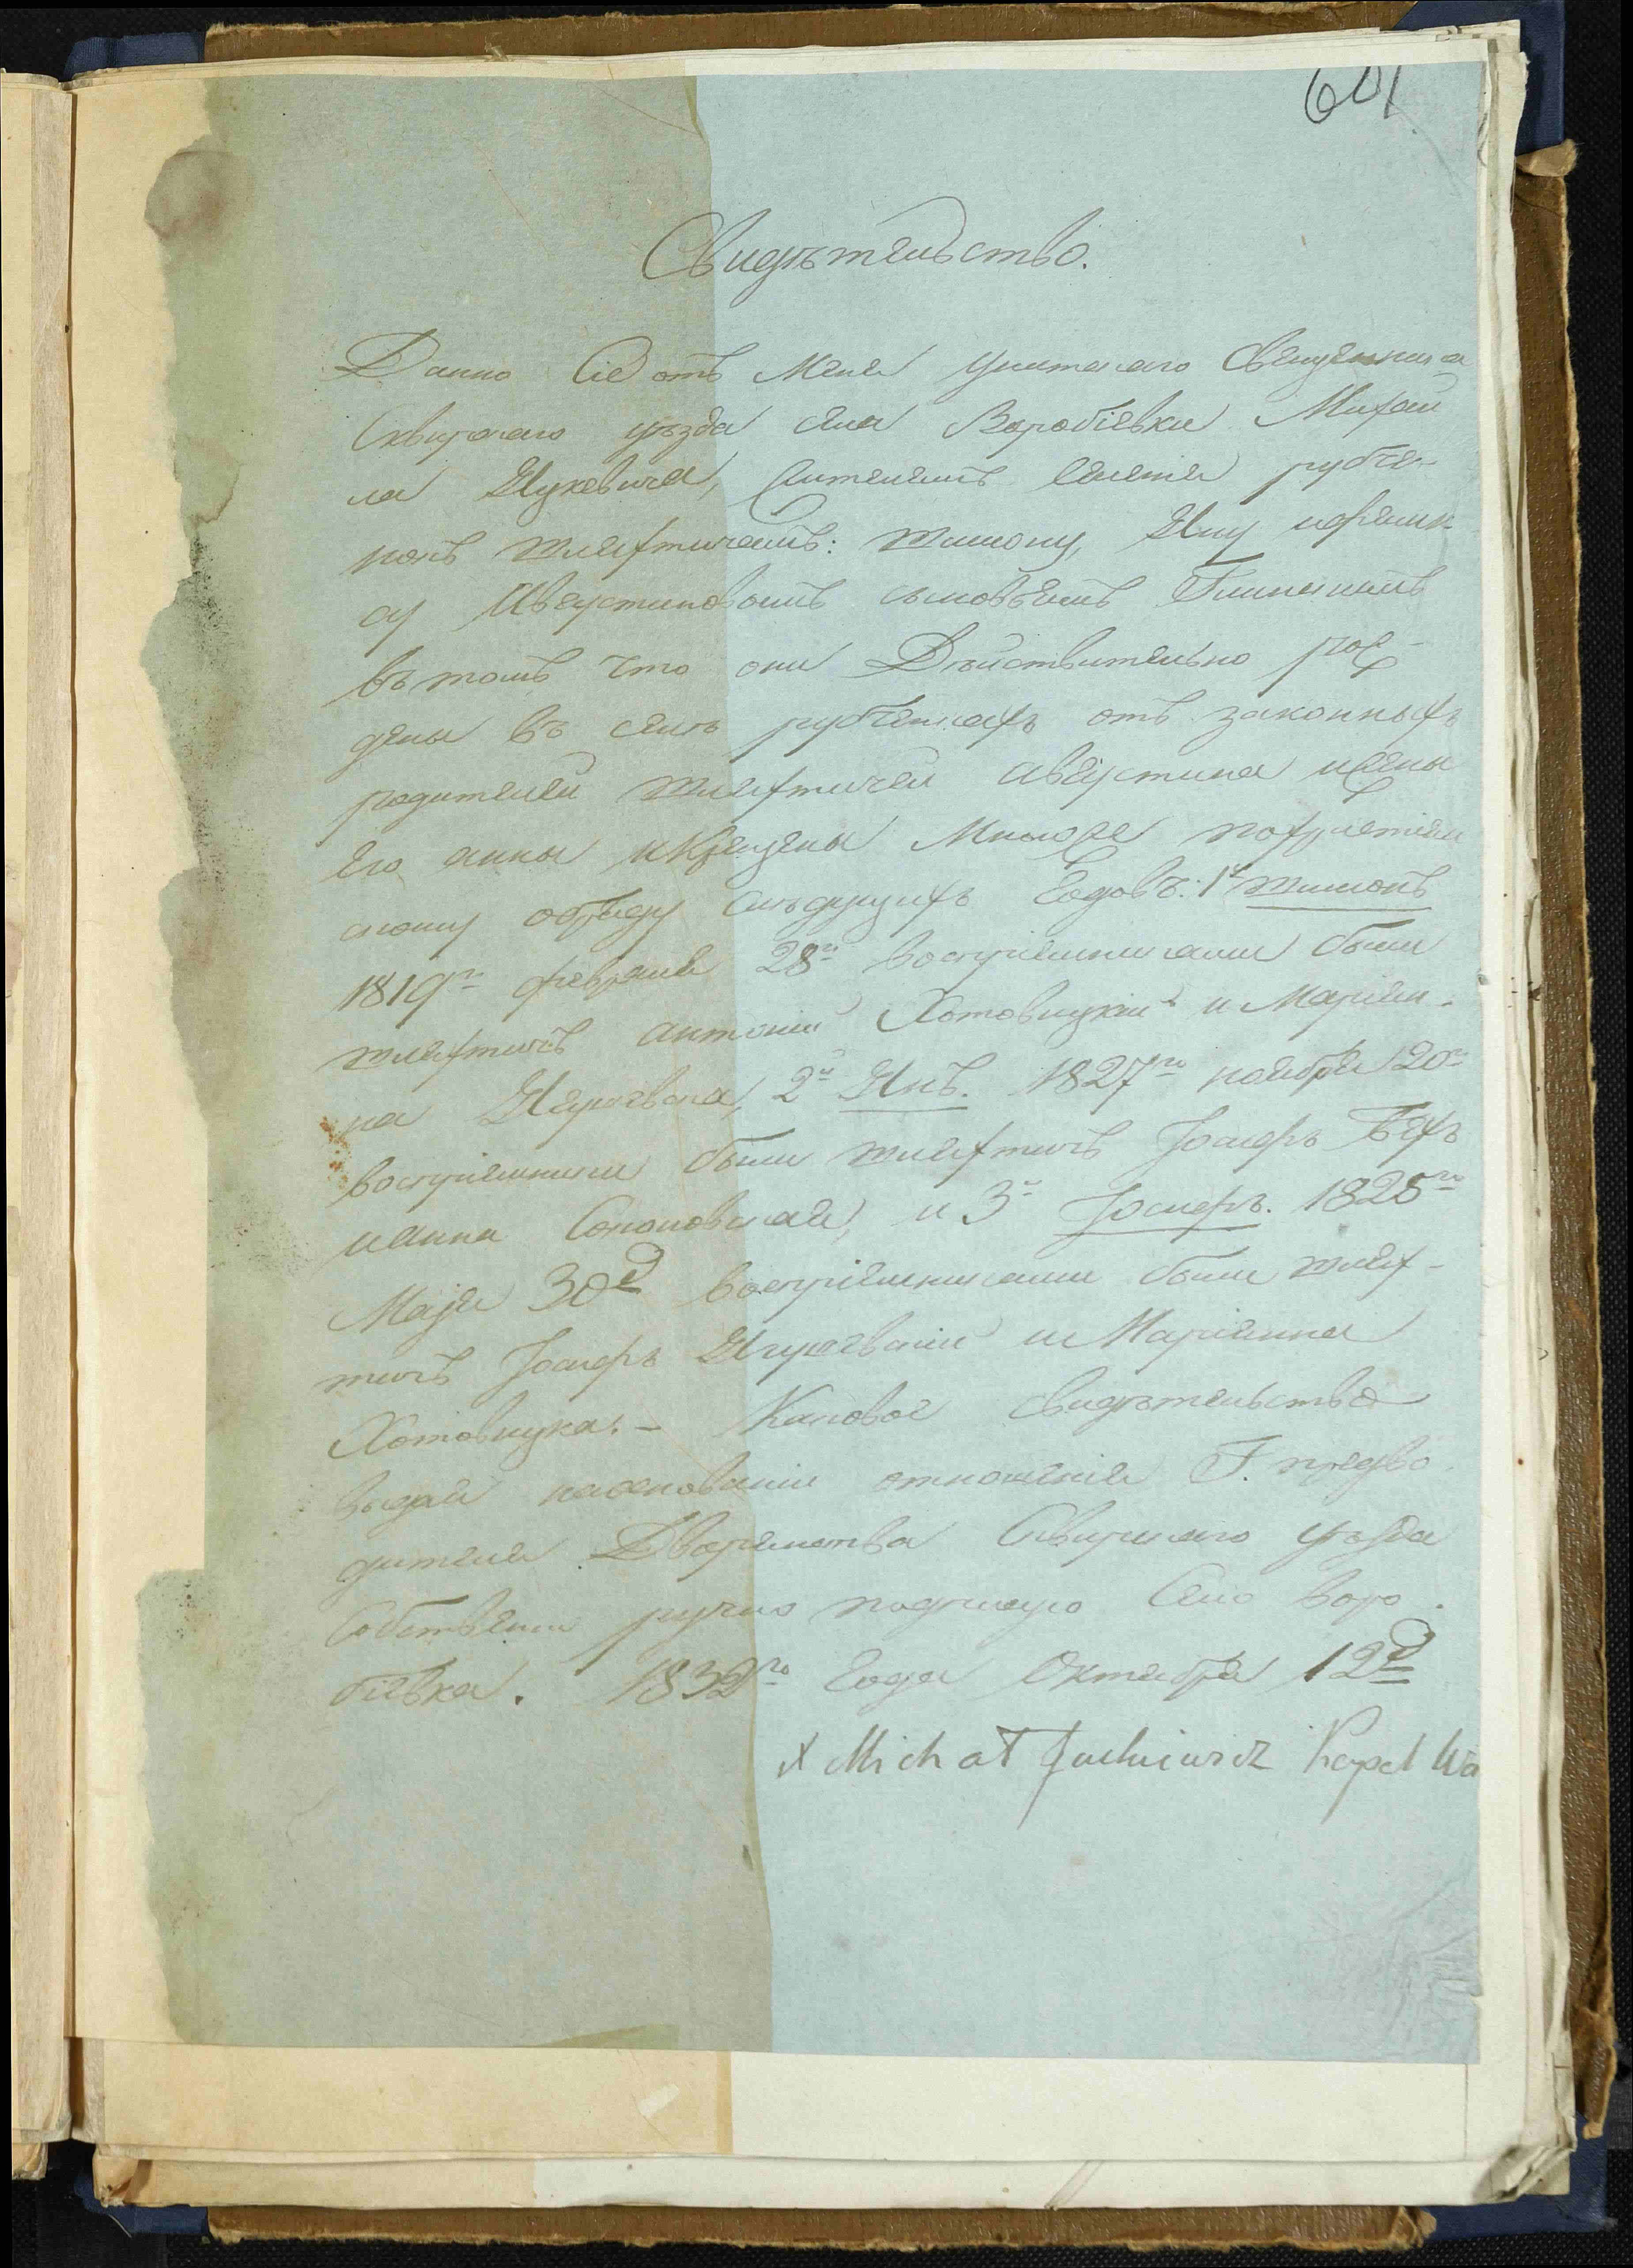 601
Свидѣтельство.
Данно Сіе отъ меня Уніатскаго Священника
Сквирскаго уѣзда села Воробіевки Михаи
ла Яцкевича, Жителямъ селенія рубче-
нокъ шляхтичамъ: шимону, Яну иосиф
у Августиновымъ сыновьямъ
въ томъ что они Дѣйствительно рож-
дены въ селѣ рубченкахъ отъ законныхъ
родителей шляхтичей августина и жены
его анны и Крещены Мною же по
скому обряду слѣдующихъ Годовъ: 1й шимонъ
1819го февраля 28го воспріемниками были
шляхтичъ антоній Хотовицкій и Маріян-
на 2й Янъ. 1827го ноября 20го
воспріемники были шляхтичъ Іосифъ
и анна Соколовская, и 3й Іосифъ. 1825го
Маја 30д воспріемниками были шлях-
тичъ Іосифъ и Маріянна
Хотовицка. – Каковое свидѣтельство
выдай на основаніи отношенія Г. предво
дителя Дворянства Сквирскаго уѣзда
Собственно ручно подписую Село воро
біевка. 1832го года Октября 12д
X Michał Jackiewicz